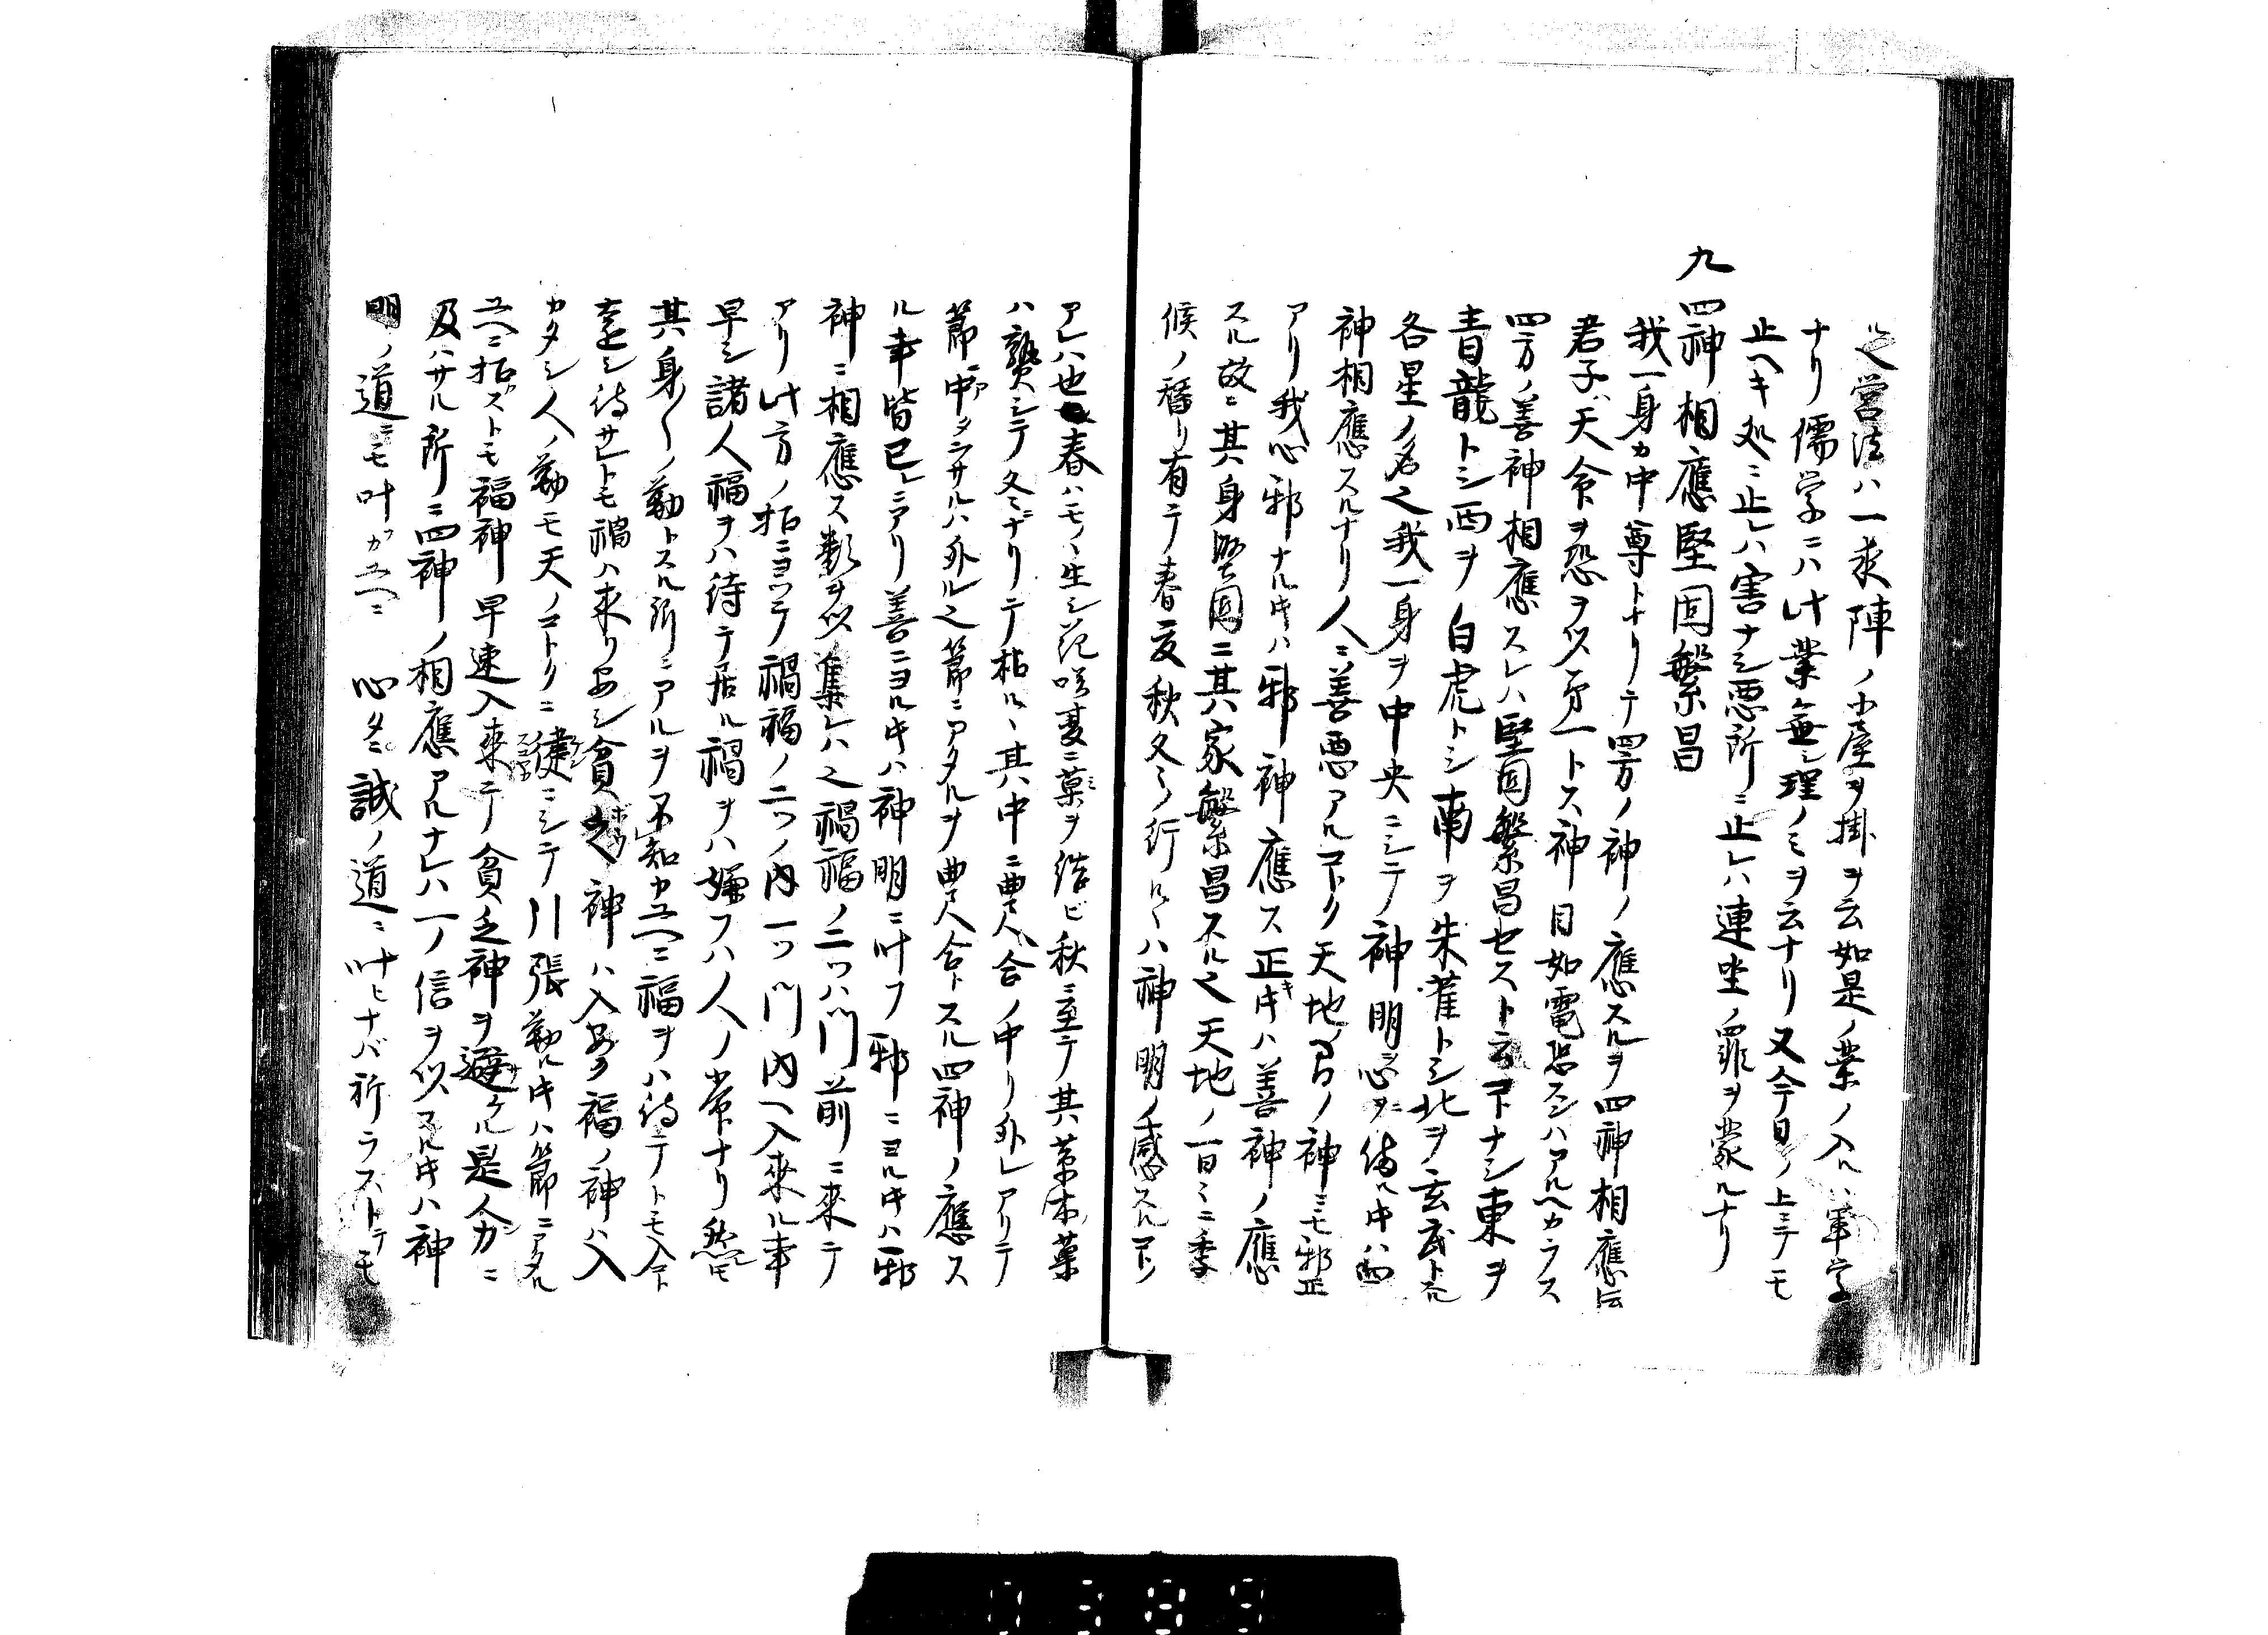 営法ハ一夜陣ノ小屋ヲ掛ヲ云如是ノ業ノ入ルハ軍学
ナリ儒学ニハ此業無シ理ノミヲ云ナリ又今日ノ上ニテモ
止ヘキ処ニ止レハ害ナシ悪所ニ止レハ連坐ノ罪ヲ蒙ルナリ
九 四神相應堅固繁昌
我一身カ中尊トナリテ四方ノ神ノ應スルヲ四神相應ト云
君子ハ天命ヲ恐ヲ以第一トス神目如電恐スンハアルヘカラス
四方ノ善神相應スレハ堅固繁昌セスト云コトナシ東ヲ
青龍トシ西ヲ白虎トシ南ヲ朱雀トシ北ヲ玄武トスル
各星ノ名也我一身ヲ中央ニシテ神明心ヲ備ル时ハ四
神相應スルナリ人ニ善悪アルコトク天地ノ間ノ神ニモ邪正
アリ我心邪ナル时ハ邪神應ス正キ时ハ善神ノ應
スル故ニ其身堅固ニ其家繁昌スル也天地ノ一日々ニ季
候ノ替リ有テ春夏秋冬ト行ルヽハ神明ノ感スルコト
アレハ也春ハモノヽ生シ花咲夏ニ菓ヲ結ビ秋ニ至テ其草木菓
ハ熟シテ冬ニナリテ枯ルヽ其中ニ豊凶ノ中リ外レアリテ
節ニ中ラサルハ外ル也節ニアタルヲ豊合トスル四神ノ應ス
ル事皆己レニアリ善ニヨル时ハ神明ニ叶フ邪ニヨル时ハ邪
神ニ相應ス類ヲ以集レハ也禍福ノ二ツハ門前ニ来テ
アリ此方ノ招ニヨツテ禍福ノ二ツノ内一ツ門内ヘ入来ル事
早シ諸人福ヲハ待テ居ル禍ヲハ嫌フハ人ノ常ナリ然レトモ
其身〱ノ勤トスル所ニアルヲ不知カユヘニ福ヲハ待テトモ入コト
遠シ待サレトモ禍ハ来リ安シ貧乏神ハ入安ク福ノ神ハ入
カタシ人ノ勤モ天ノコトクニ健ニシテ引張勤ル时ハ節ニアタル
ユヘニ招ズトモ福神早速入来テ貧乏神ヲ避ケル是人力ニ
及ハサル所ニ四神ノ相應アルナレハ一ノ信ヲ以スル时ハ神
明ノ道ニモ叶カユヘニ 心タニ誠ノ道ニ叶ヒナバ祈ラストテモ